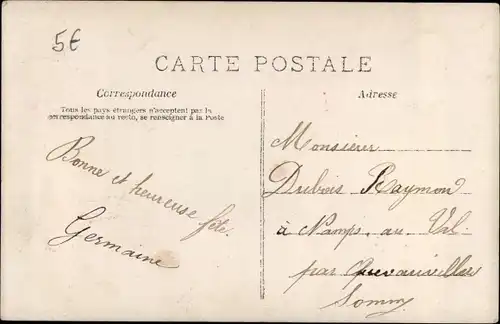 5€
CARTE POSTALE
Correspondance
Tous les pays étrangers n'acceptent pas la
correspondance au recto, se renseigner à la Poste
Bonne et heureuse fête.
Germaine
Adresse
Monsieur
Dubois Raymon
à Namps. au Val
par Quevauvillers
Somme